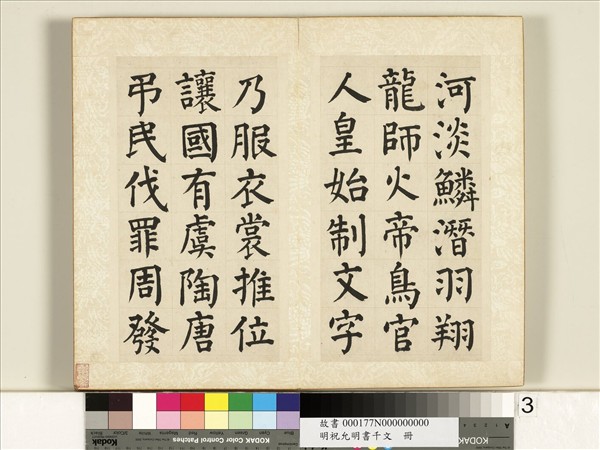 河淡鱗潛羽翔
龍師火帝鳥官
人皇始制文字
乃服衣裳推位
讓國有虞陶唐
弔民伐罪周發
3
故書 000177N000000000
明祝允明書千文 冊
Kodak
KODAK Color Control Patches
Kodak